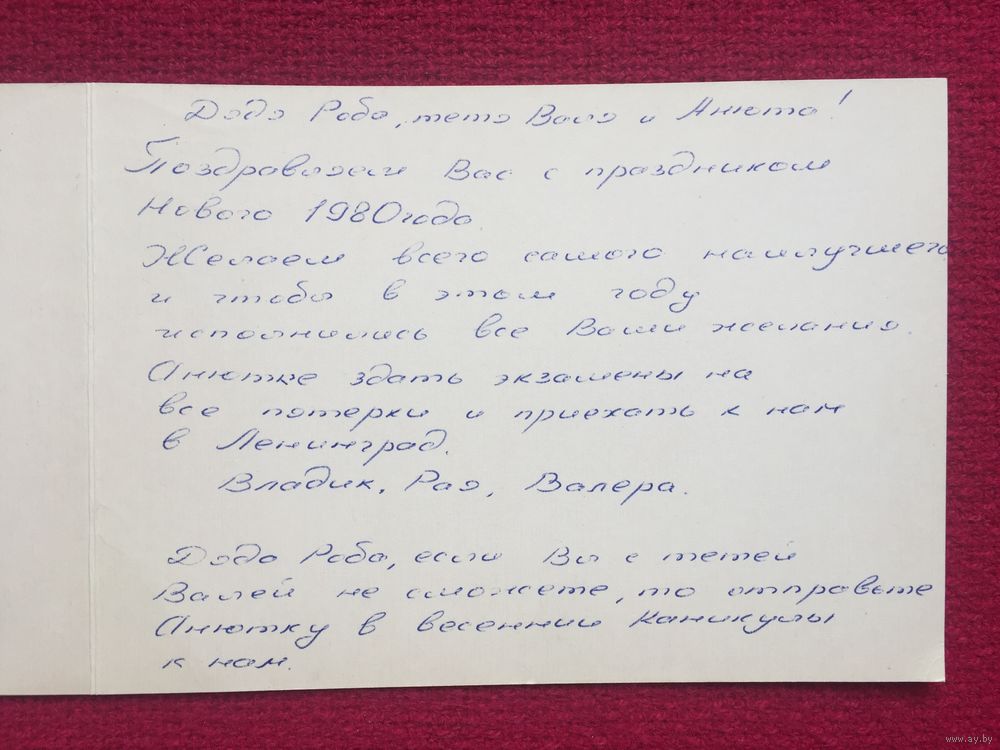 Дядя Роба, тетя Валя и Анюта!
Поздравляем Вас с праздником
Нового 1980 года.
Желаем всего самого наилучшего
и чтобы в этом году
исполнились все Ваши желания.
Анютке здать экзамены на
все потерки и приехать к нам
в Ленинград.
Владик, Рая, Валера.
Дядя Роба, если Вы с тетей
Валей не сможете, то отправьте
Анютку в весенние каникулы
к нам.
www.ay.by